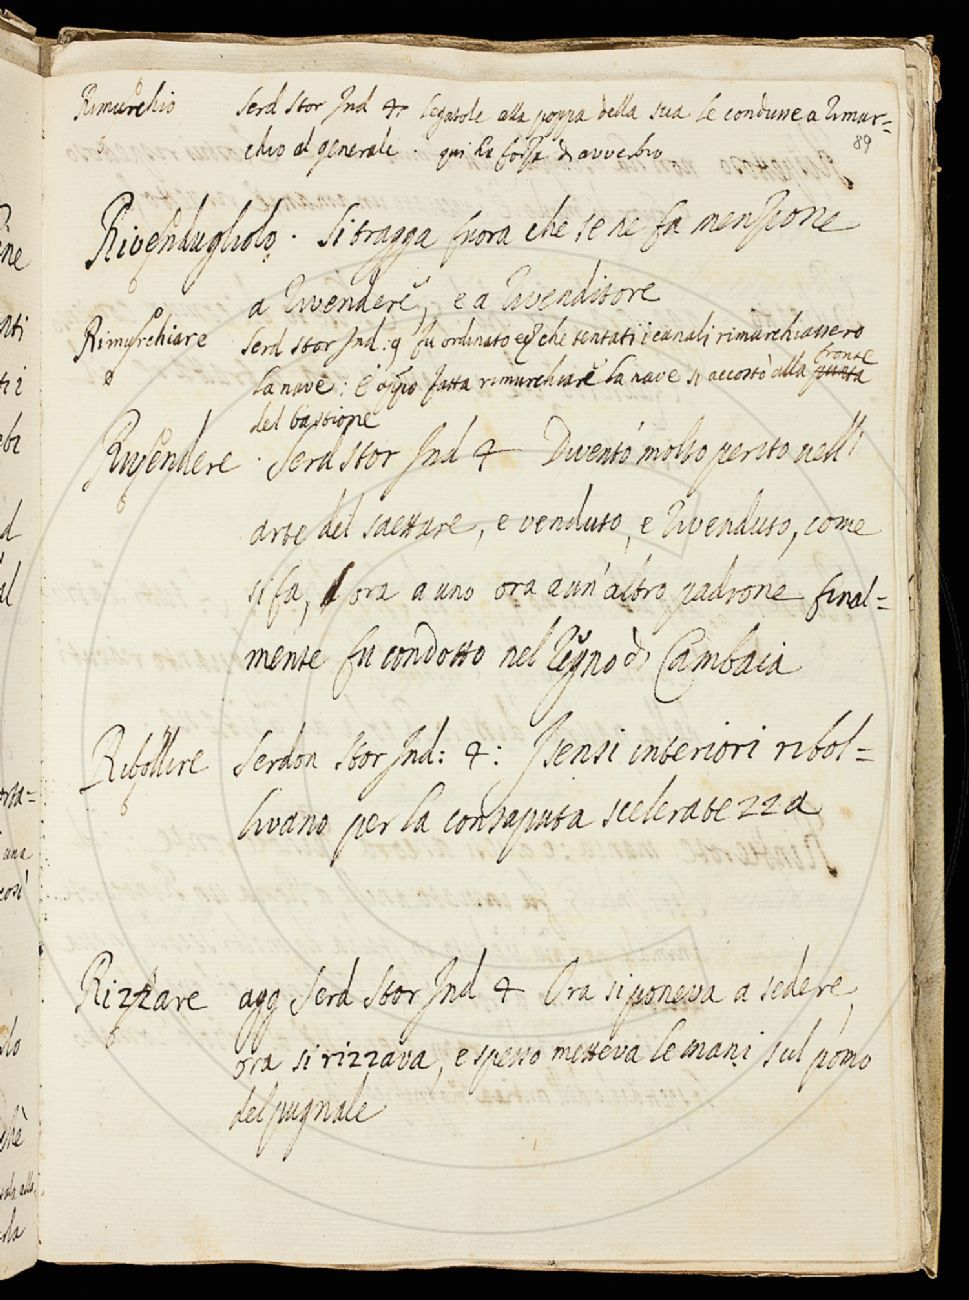 Rimurchio Serd Stor Ind 4 legatole alla poppa della sua le condusse a rimur=
chio al generale . qui ha forza di avverbio
89
Rivendugliolo . Si tragga fuora che se ne fa menzione
a Rivendere, e a Rivenditore
Rimurchiare Serd Stor Ind: 9 fu ordinato che tentati i canali rimurchiassero
la nave: E fatta rimurchiare la nave si accostò alla punta fronte
del bastione
Rivendere . Serd Stor Ind 4 Diventò molto perito nell'
arte del saettare, e venduto, e rivenduto, come
si fa, ora a uno ora a un'altro padrone final=
mente fu condotto nel Regno di Cambaia
Ribollire Serdon Stor Ind: 4: I sensi interiori ribol=
livano per la consaputa sceleratezza
Rizzare agg Serd Stor Ind 4 Ora si poneva a sedere,
ora si rizzava, e spesso metteva le mani sul pomo
del pugnale